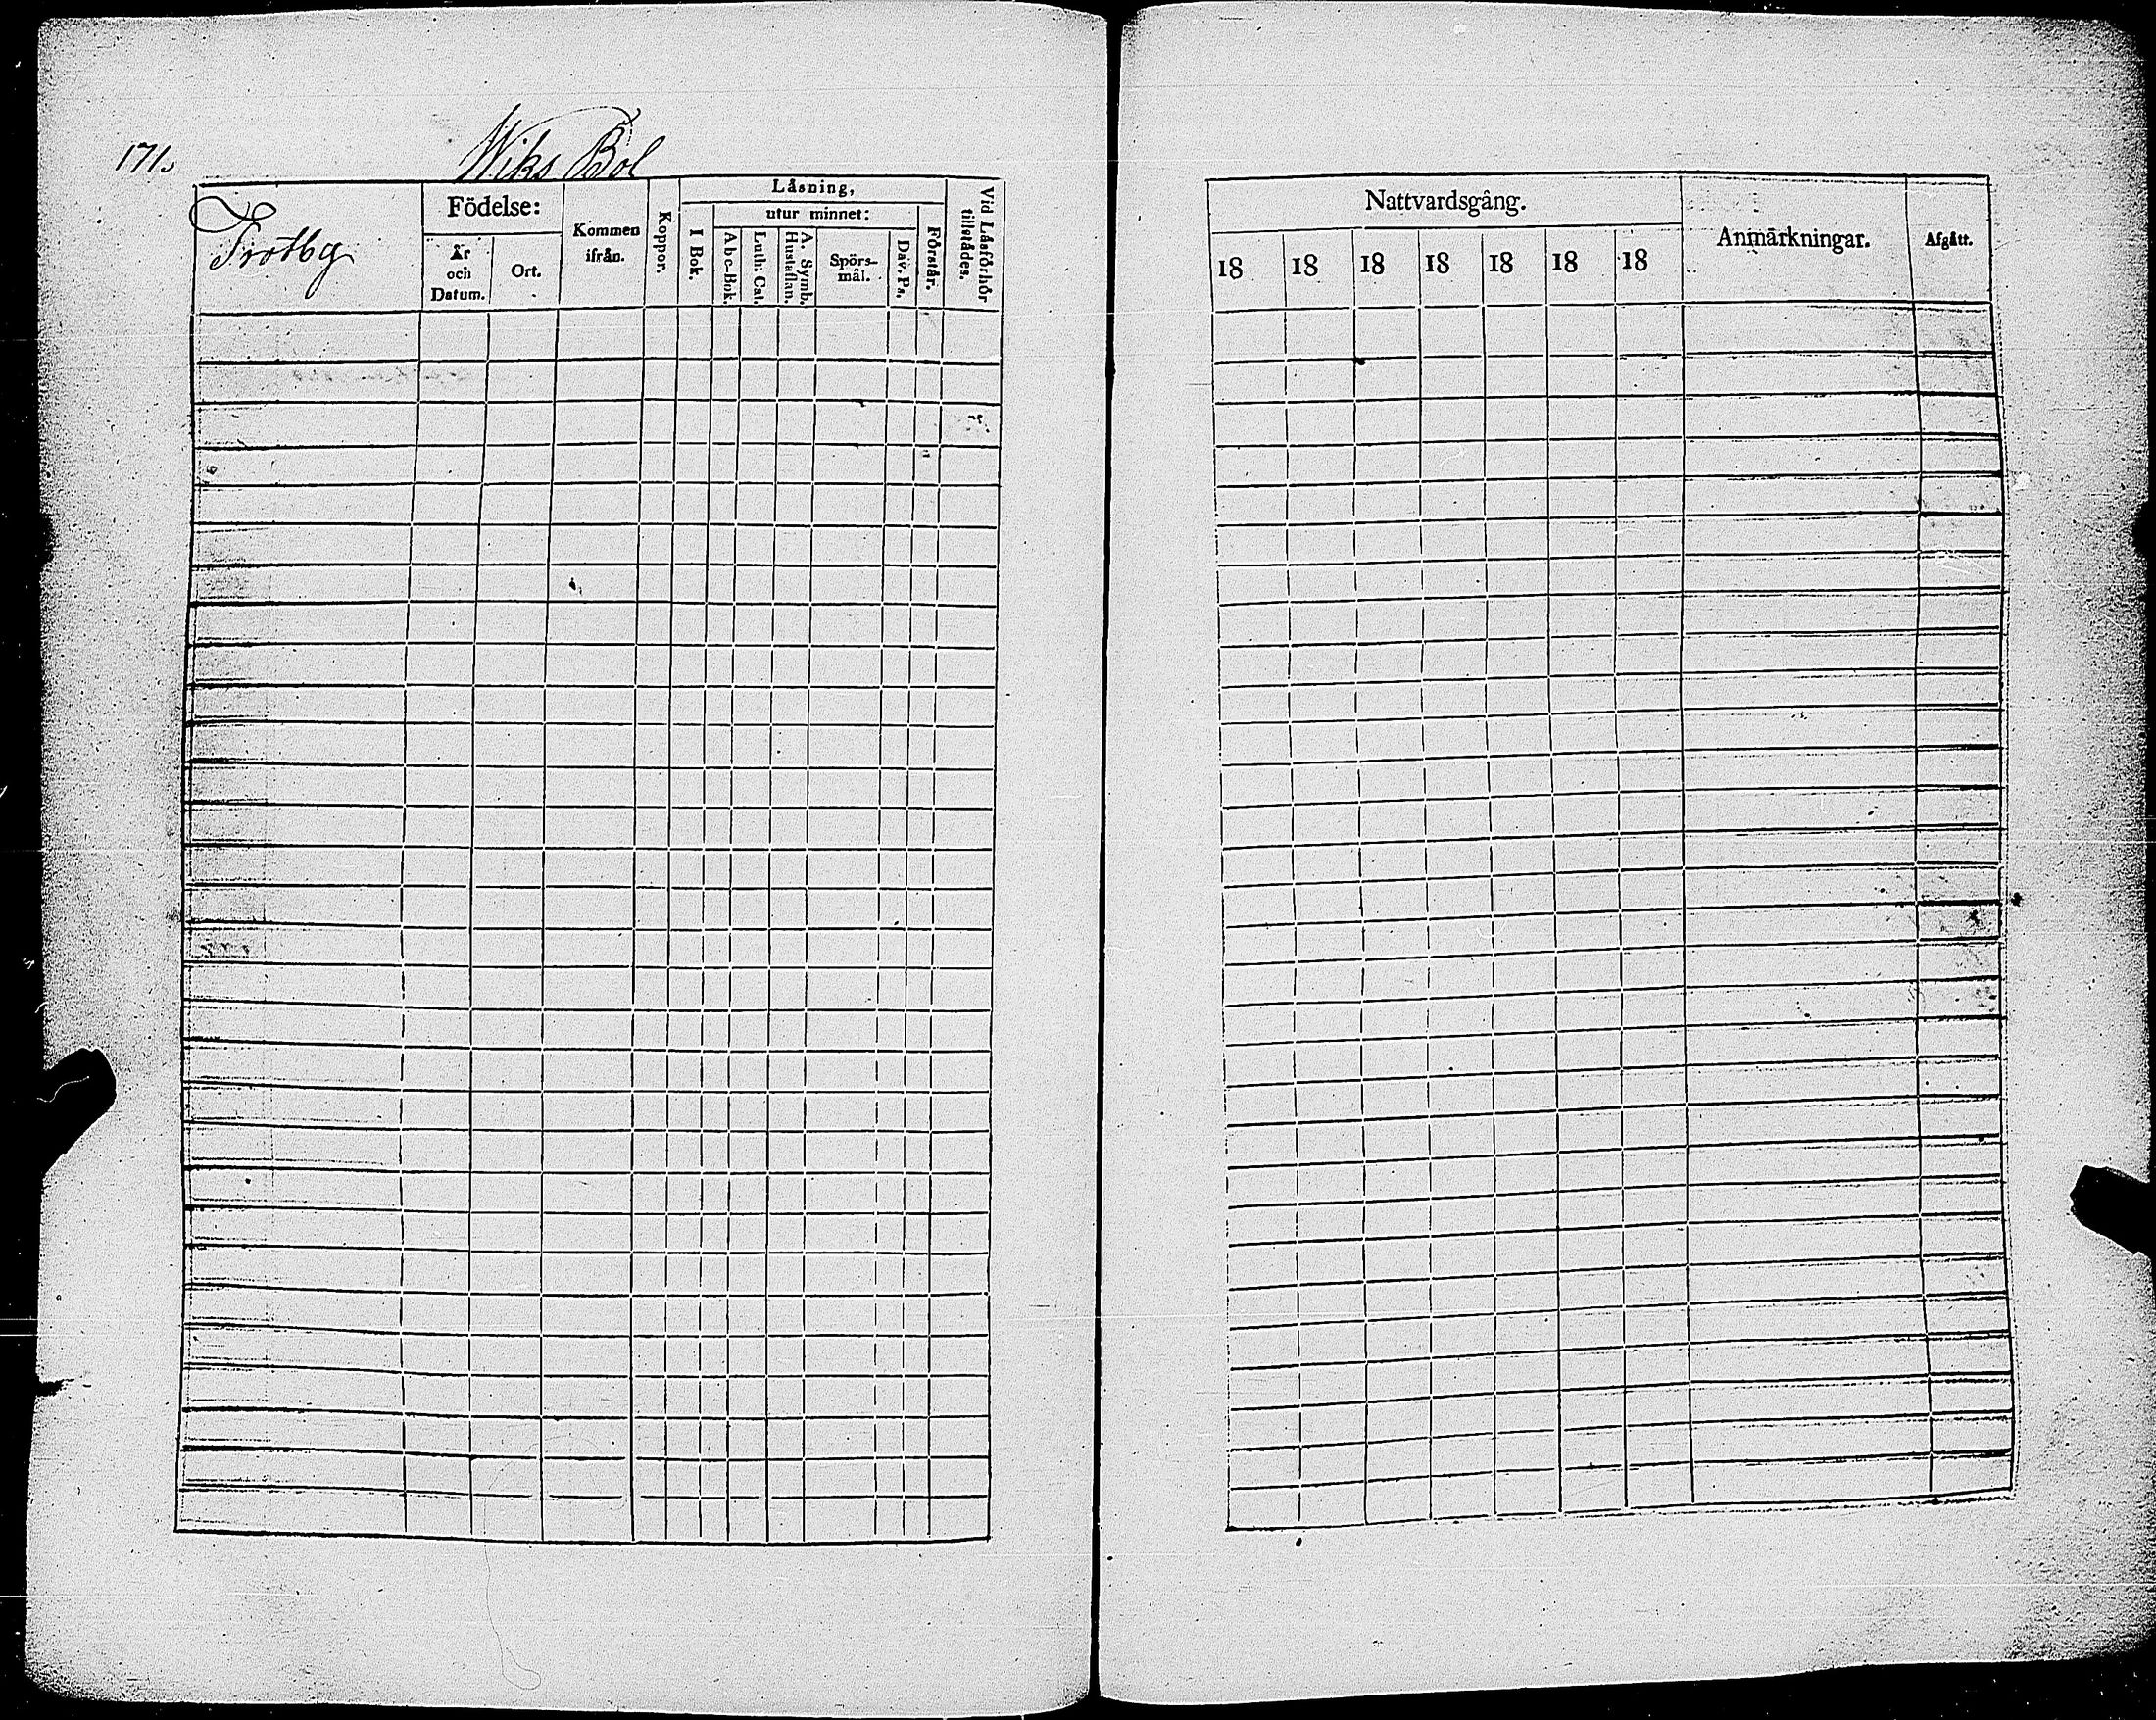 171.
Wiks Bol
Trotby
Födelse:
År
och
Datum.
Ort.
Kommen
ifrån.
Koppor.
Låsning,
I Bok.
utur minnet:
Abc-Bok.
Luth: Cat.
A. Symb.
Hustaflan.
Spörs-
mål.
Dav. Ps.
Förstår.
Vid Låsförhör
tillstådes.
Nattvardsgång.
18 18 18 18 18 18 18
Anmärkningar.
Afgått.